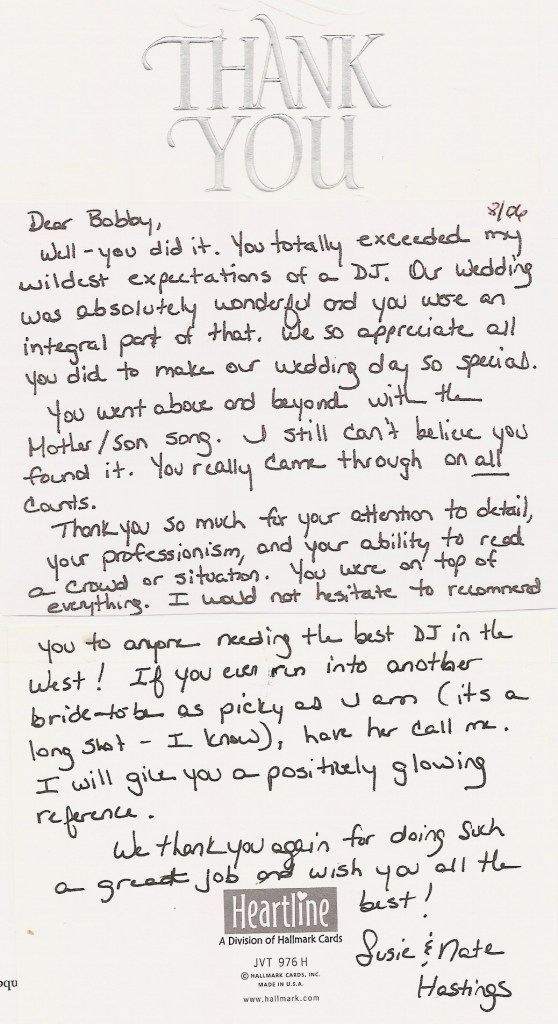 THANK
YOU
8/06
Dear Bobby,
Well - you did it. You totally exceeded my
wildest expectations of a DJ. Our wedding
was absolutely wonderful and you were an
integral part of that. We so appreciate all
you did to make our wedding day so special.
You went above and beyond with the
Mother/Son song. I still can't believe you
found it. You really came through on all
counts.
Thank you so much for your attention to detail,
your professionism, and your ability to read
a crowd or situation. You were on top of
everything. I would not hesitate to recommend
you to anyone needing the best DJ in the
West! If you ever run into another
bride-to-be as picky as I am (its a
long shot - I know), have her call me.
I will give you a positively glowing
reference.
We thank you again for doing such
a great job and wish you all the
best!
Susie & Nate
Hastings
Heartline
A Division of Hallmark Cards
JVT 976 H
© HALLMARK CARDS, INC.
MADE IN U.S.A.
www.hallmark.com